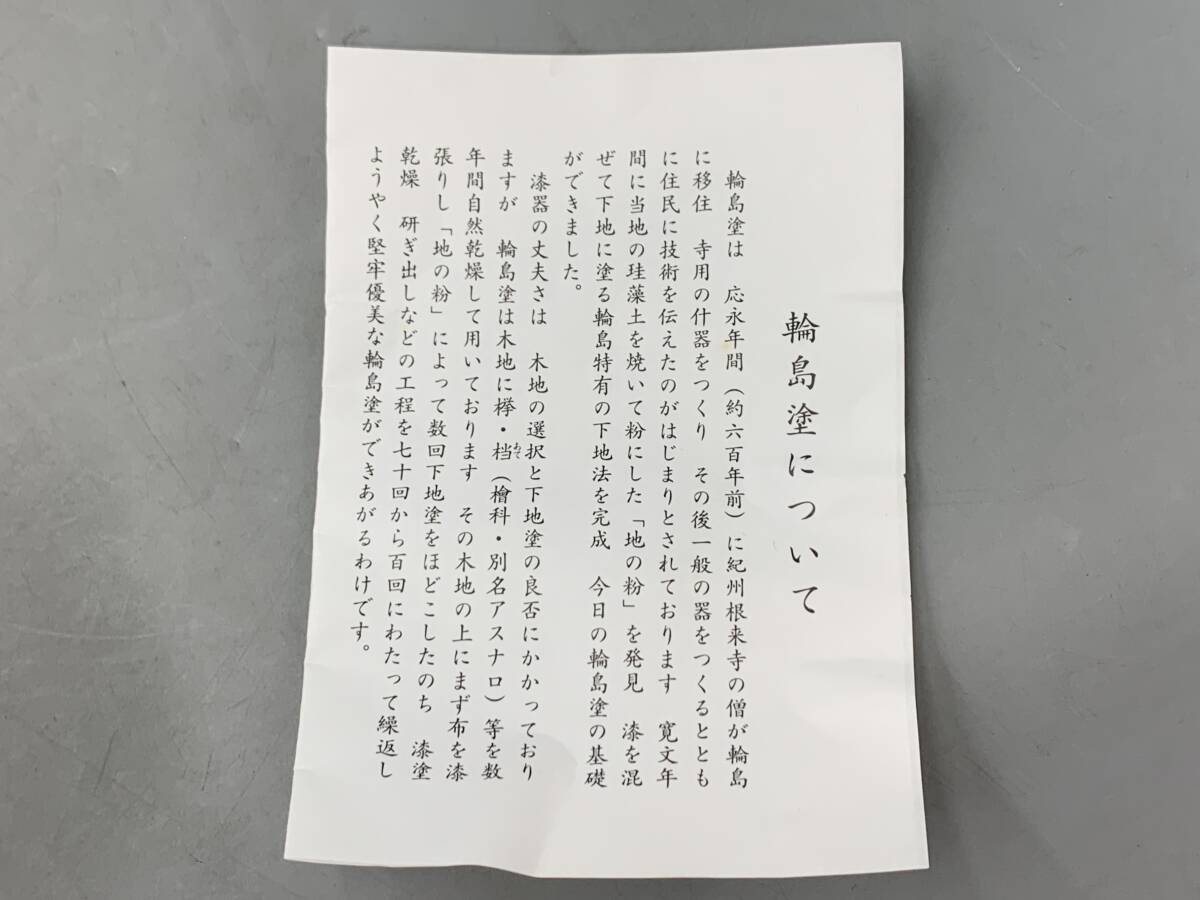 輪島塗について
輪島塗は　応永年間（約六百年前）に紀州根来寺の僧が輪島
に移住　寺用の什器をつくり　その後一般の器をつくるととも
に住民に技術を伝えたのがはじまりとされております　寛文年
間に当地の珪藻土を焼いて粉にした「地の粉」を発見　漆を混
ぜて下地に塗る輪島特有の下地法を完成　今日の輪島塗の基礎
ができました。
漆器の丈夫さは　木地の選択と下地塗の良否にかかっており
ますが　輪島塗は木地に欅・档（檜科・別名アスナロ）等を数
年間自然乾燥して用いております　その木地の上にまず布を漆
張りし「地の粉」によって数回下地塗をほどこしたのち　漆塗
乾燥　研ぎ出しなどの工程を七十回から百回にわたって繰返し
ようやく堅牢優美な輪島塗ができあがるわけです。